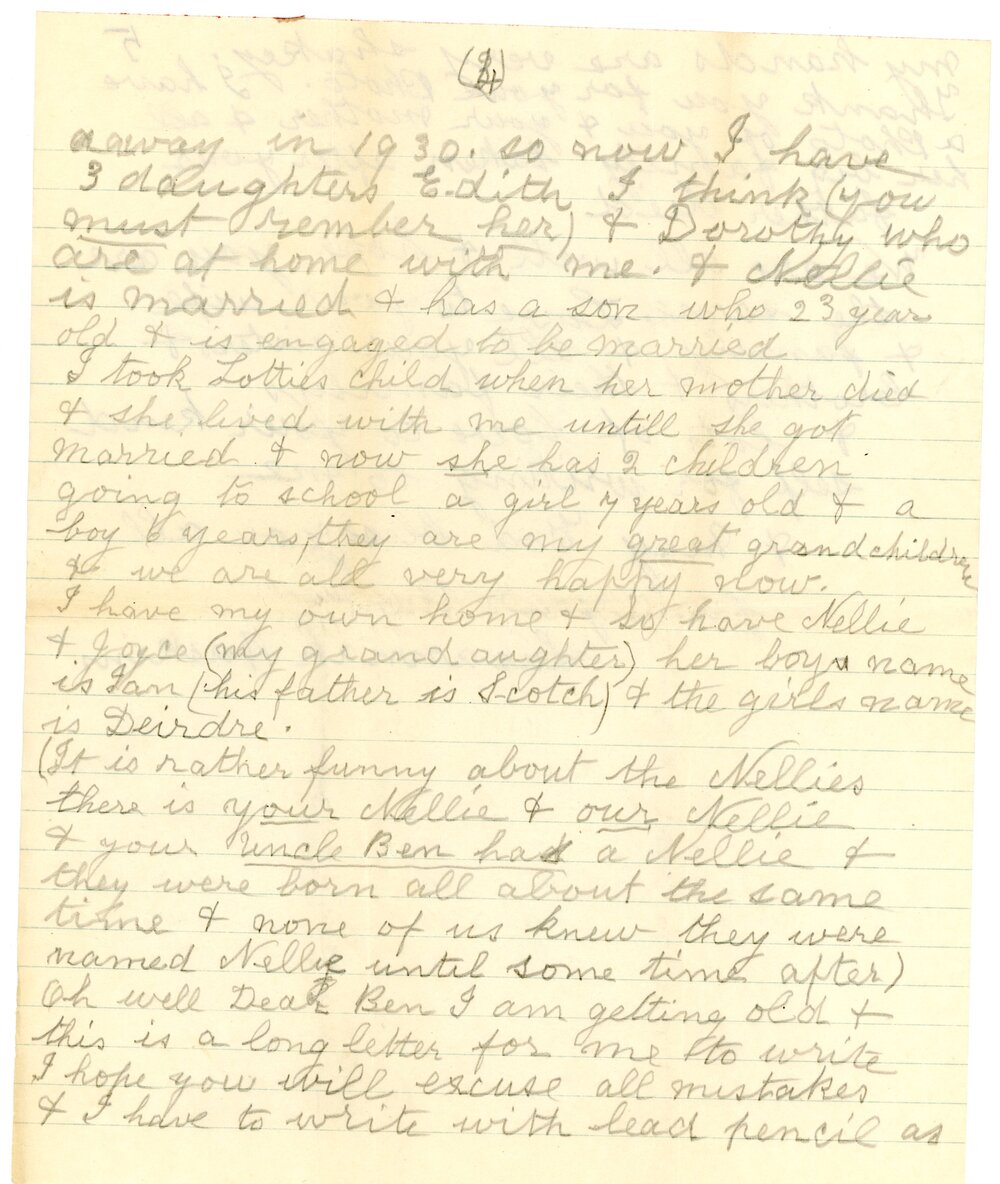 (4)
away in 1930. so now I have
3 daughters Edith I think (you
must rember her) & Dorothy who
are at home with me. & Nellie
is married & has a son who 23 year
old & is engaged to be married
I took Lotties child when her mother died
& she lived with me untill she got
married & now she has 2 children
going to school a girl 7 years old & a
boy 6 years, they are my great grandchildren
& we are all very happy now.
I have my own home & so have Nellie
& Joyce (my grandaughter) her boys name
is Ian (his father is Scotch) & the girls name
is Deirdre.
(It is rather funny about the Nellies
there is your Nellie & our Nellie
& your Uncle Ben had a Nellie &
they were born all about the same
time & none of us knew they were
named Nellie until some time after)
Oh well Dear Ben I am getting old &
this is a long letter for me to write
I hope you will excuse all mistakes
& I have to write with lead pencil as